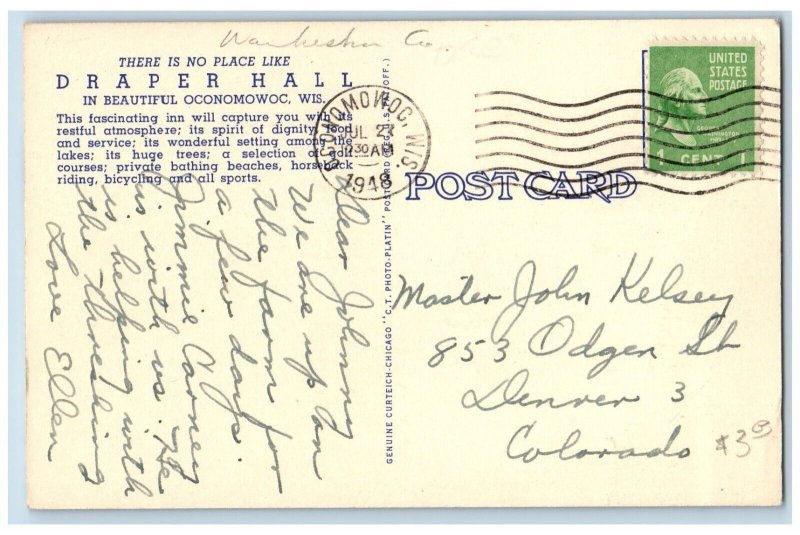 Waukesha Co
THERE IS NO PLACE LIKE
DRAPER HALL
IN BEAUTIFUL OCONOMOWOC, WIS.
This fascinating inn will capture you with its
restful atmosphere; its spirit of dignity, food
and service; its wonderful setting among the
lakes; its huge trees; a selection of golf
courses; private bathing beaches, horseback
riding, bicycling and all sports.
Dear Johnny
We are up on
the farm for
a few days.
Jimmie Carney
is with us. He
is helping with
the threshing
Love Ellen
GENUINE CURTEICH-CHICAGO "C.T. PHOTO-PLATIN" POSTCARD (REG. U.S. PAT. OFF.)
OCONOMOWOC, WIS.
JUL 27
730 AM
1948
UNITED
STATES
POSTAGE
GEORGE
WASHINGTON
1 CENT 1
POST CARD
Master John Kelsey
853 Odgen St
Denver 3
Colorado
$3.00